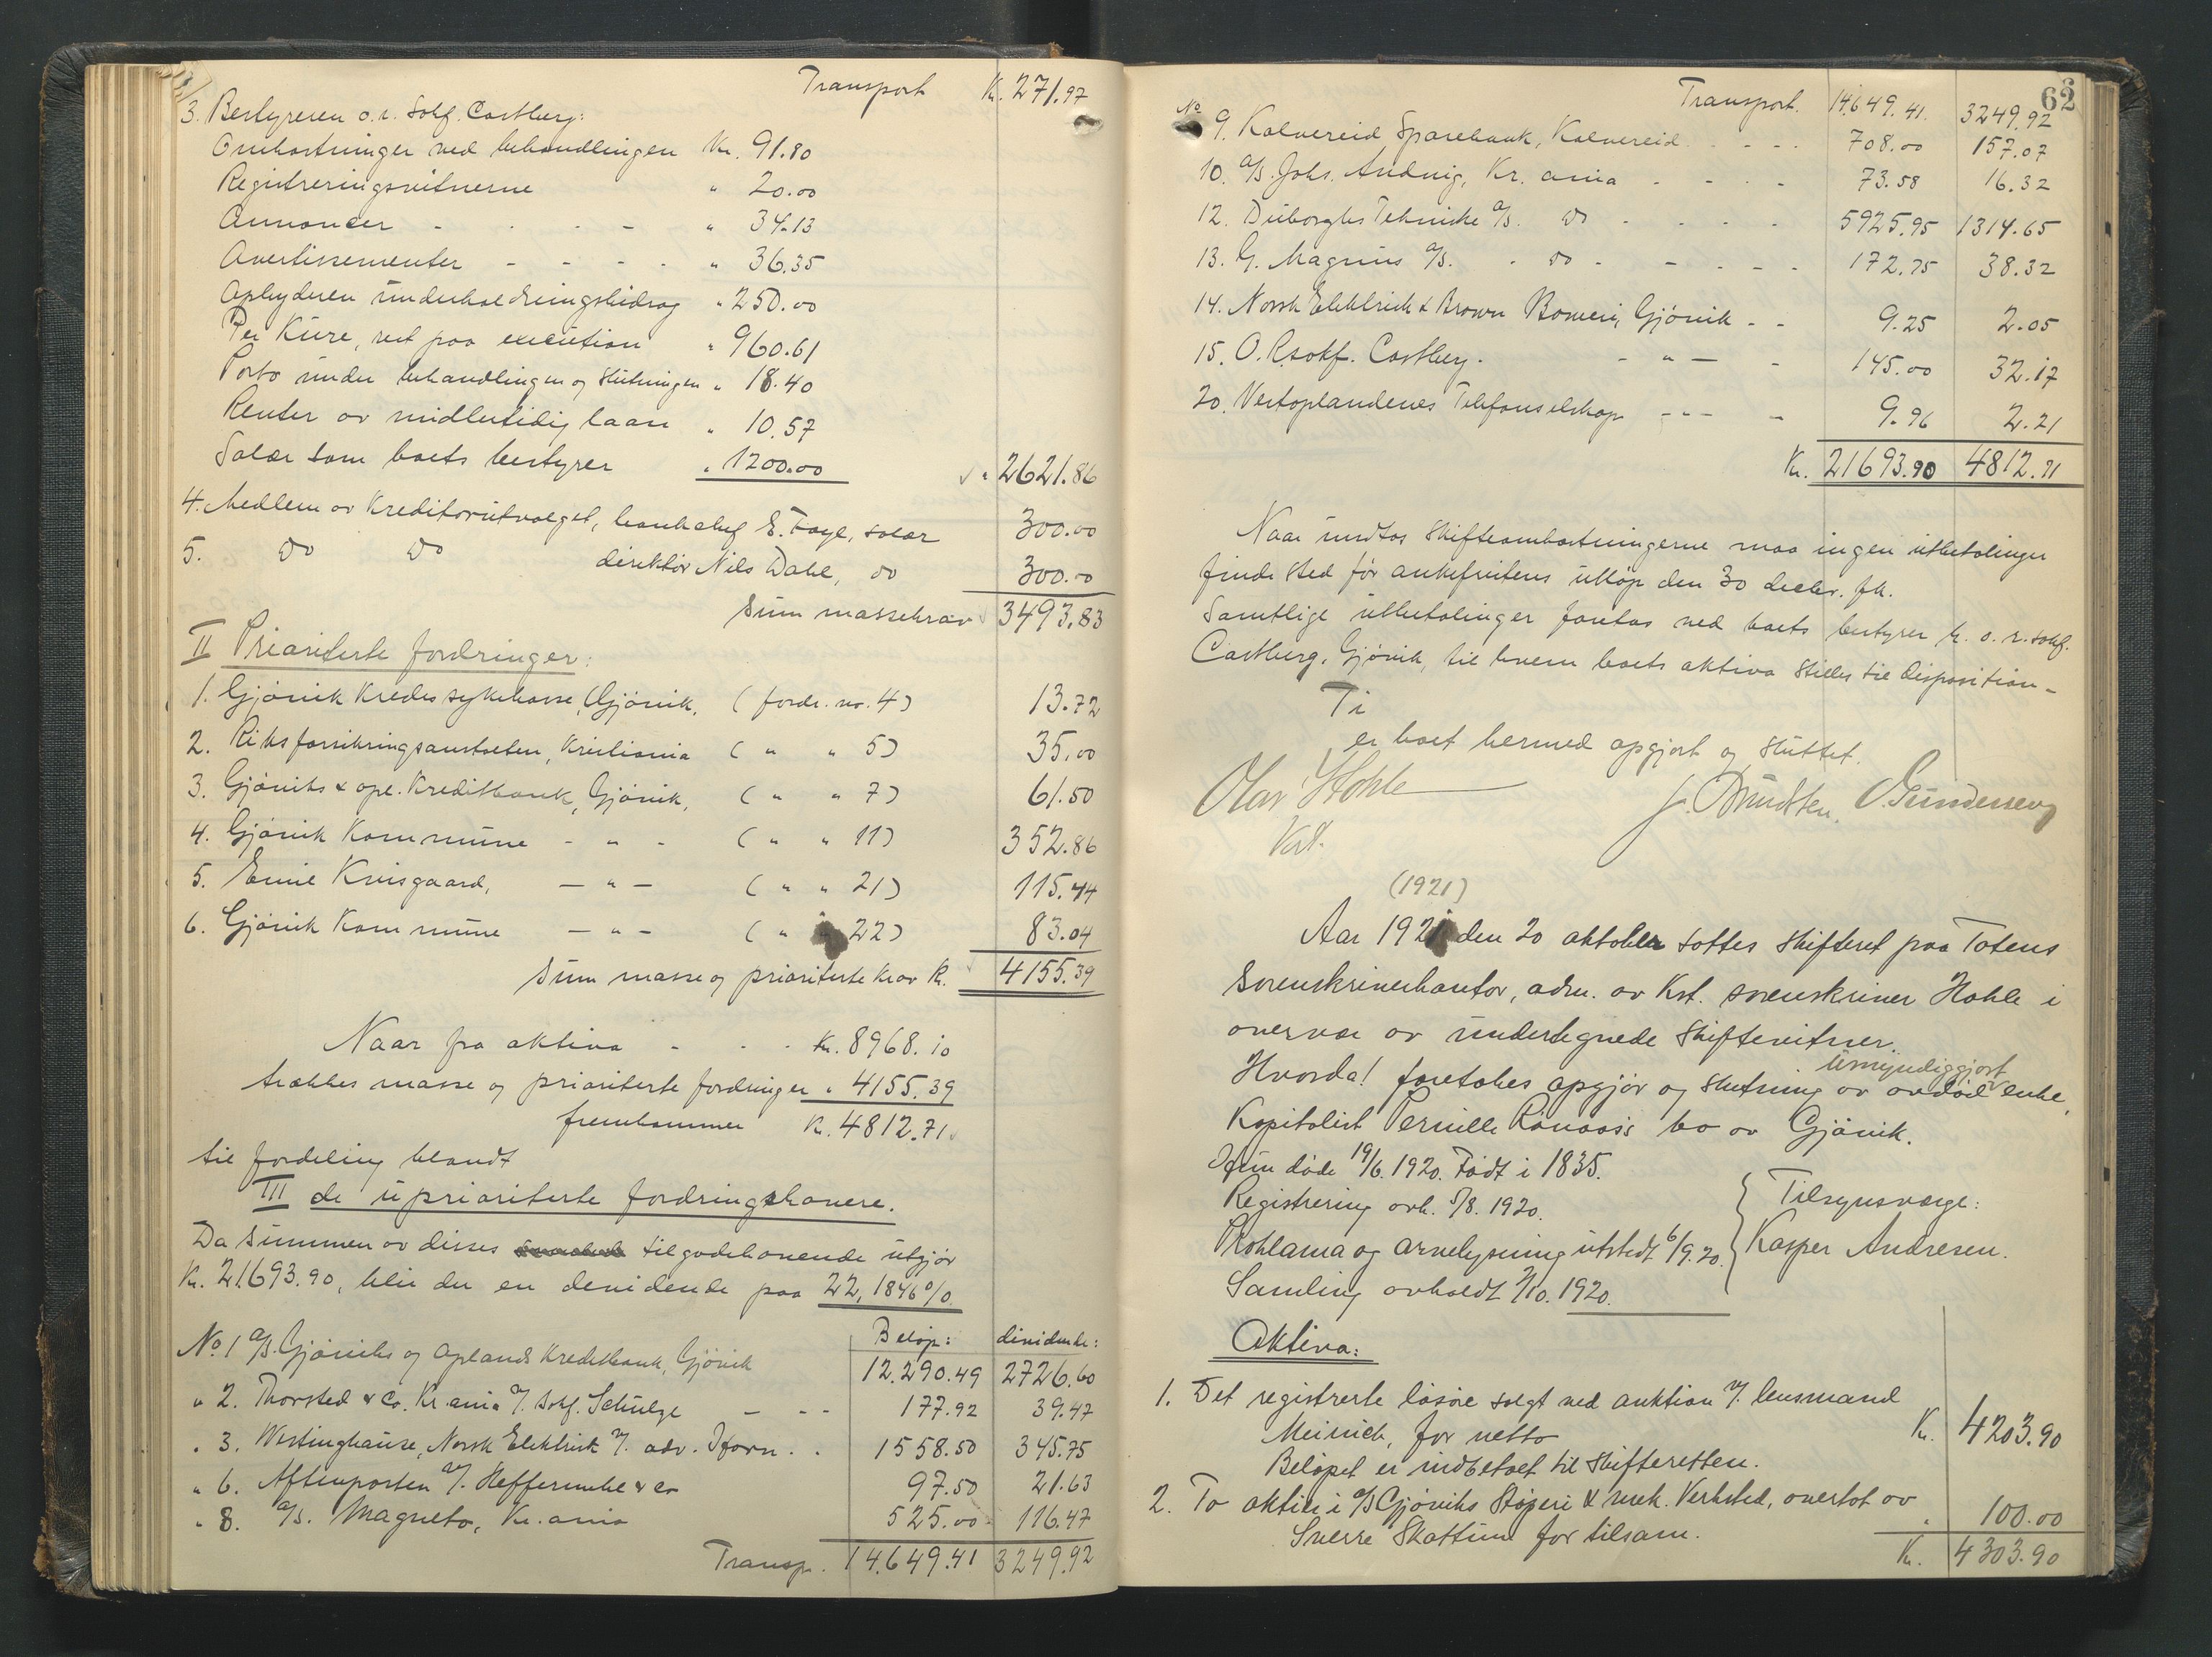 Transport Kr. 271.97
3. Bestyreren o.r. sakf. Castberg:
Omkostninger ved behandlingen Kr. 91.80
Registreringsvitnerne " 20.00
Annoncer - - - - " 34.13
Avertissementer - - - - " 36.35
Opbyderen underholdningsbidrag " 250.00
Per Kure, rest paa execution " 960.61
Porto under behandlingen og slutningen " 18.40
Renter av midlertidig laan " 10.57
Salær som boets bestyrer " 1200.00 " 2621.86
4. Medlem av Kreditorutvalget, banksjef E. Faye, salær 300.00
5. Do Do direktør Nils Dahl, do 300.00
Sum massekrav 3493.83
II Prioriterte fordringer:
1. Gjøvik Kredssykekasse, Gjøvik, (fordr. no. 4) 13.72
2. Riksforsikringsanstalten, Kristiania ( " " 5) 35.00
3. Gjøviks & opl. Kreditbank, Gjøvik, ( " " 7) 61.50
4. Gjøvik Kommune - " - ( " " 11) 352.86
5. Emie Kvisgaard, - " - ( " " 21) 115.44
6. Gjøvik Kommune - " - ( " " 22) 83.04
Sum masse og prioriterte krav Kr. 4155.39
Naar fra aktiva - - - Kr. 8968.10
trækkes masse og prioriterte fordringer " 4155.39
fremkommer Kr. 4812.71
til fordeling blandt
III de uprioriterte fordringshavere.
Da summen av disses tilgodehavende utgjør
Kr. 21693.90, blir der en devidende paa 22,1846%
Beløp: dividende:
No 1 a/s. Gjøviks og Oplands Kreditbank, Gjøvik 12.290.49 2726.60
" 2. Thorsted & Co. Kr.ania v/. sakf. Schulze - - - 177.92 39.47
" 3. Westinghause, Norsk Elektrisk v/. adv. - - 1558.50 345.75
" 6. Aftenposten v/. Heffermehl & Co 97.50 21.63
" 8. a/s. Magneto, Kr.ania 525.00 116.47
Transp. 14.649.41 3249.92
62
Transport. 14.649.41. 3249.92
No 9. Kolvereid Sparebank, Kolvereid - - - - 708.00 157.07
10. a/s. Johs. Andvig, Kr.ania - - - - 73.58 16.32
12. Duborghs Tekniske a/s. Do - - - - 5925.95 1314.65
13. G. Magnus a/s. - Do - - - - - 172.75 38.32
14. Norsk Elektrisk & Brown Boweri, Gjøvik - - 9.25 2.05
15. O.R.sakf. Castberg. - " - - 145.00 32.17
20. Vestoplandenes Telefonselskap - - - - 9.96 2.21
Kr. 21693.90 4812.71
Naar undtas skifteomkostningerne maa ingen utbetalinger
finde sted før ankefristens utløp den 30 decbr. fk.
Samtlige utbetalinger foretas ved boets bestyrer hr. o.r.sakf.
Castberg, Gjøvik, til hvem boets aktiva stilles til disposition -
Ti
er boet hermed opgjort og sluttet.
Olav Hohle J. Bruudsten. O. Gundersen
Kst.
(1921)
Aar 1921 den 20 oktober sattes skifteret paa Totens
Sorenskriverkontor, adm. av Kst. sorenskriver Hohle i
overvær av undertegnede skiftevitner.
Hvorda! foretokes opgjør og slutning av avdød umyndiggjort enke,
Kapitalist Pernille bo av Gjøvik.
Hun døde 19/6. 1920. Født i 1835.
Registrering avh. 5/8. 1920.
Proklama og arvelysning utstedt 6/9.20.
Samling avholdt 2/10. 1920.
Tilsynsværge:
Kasper Andresen.
Aktiva:
1. Det registrerte løsøre solgt ved auktion v/. lensmand
Meinich, for netto Kr. 4203.90
Beløpet er indbetalt til skifteretten.
2. To aktier i a/s Gjøviks Støperi & mek. Verksted, overtat av
Sverre Skattum for tilsam. " 100.00
Kr. 4303.90